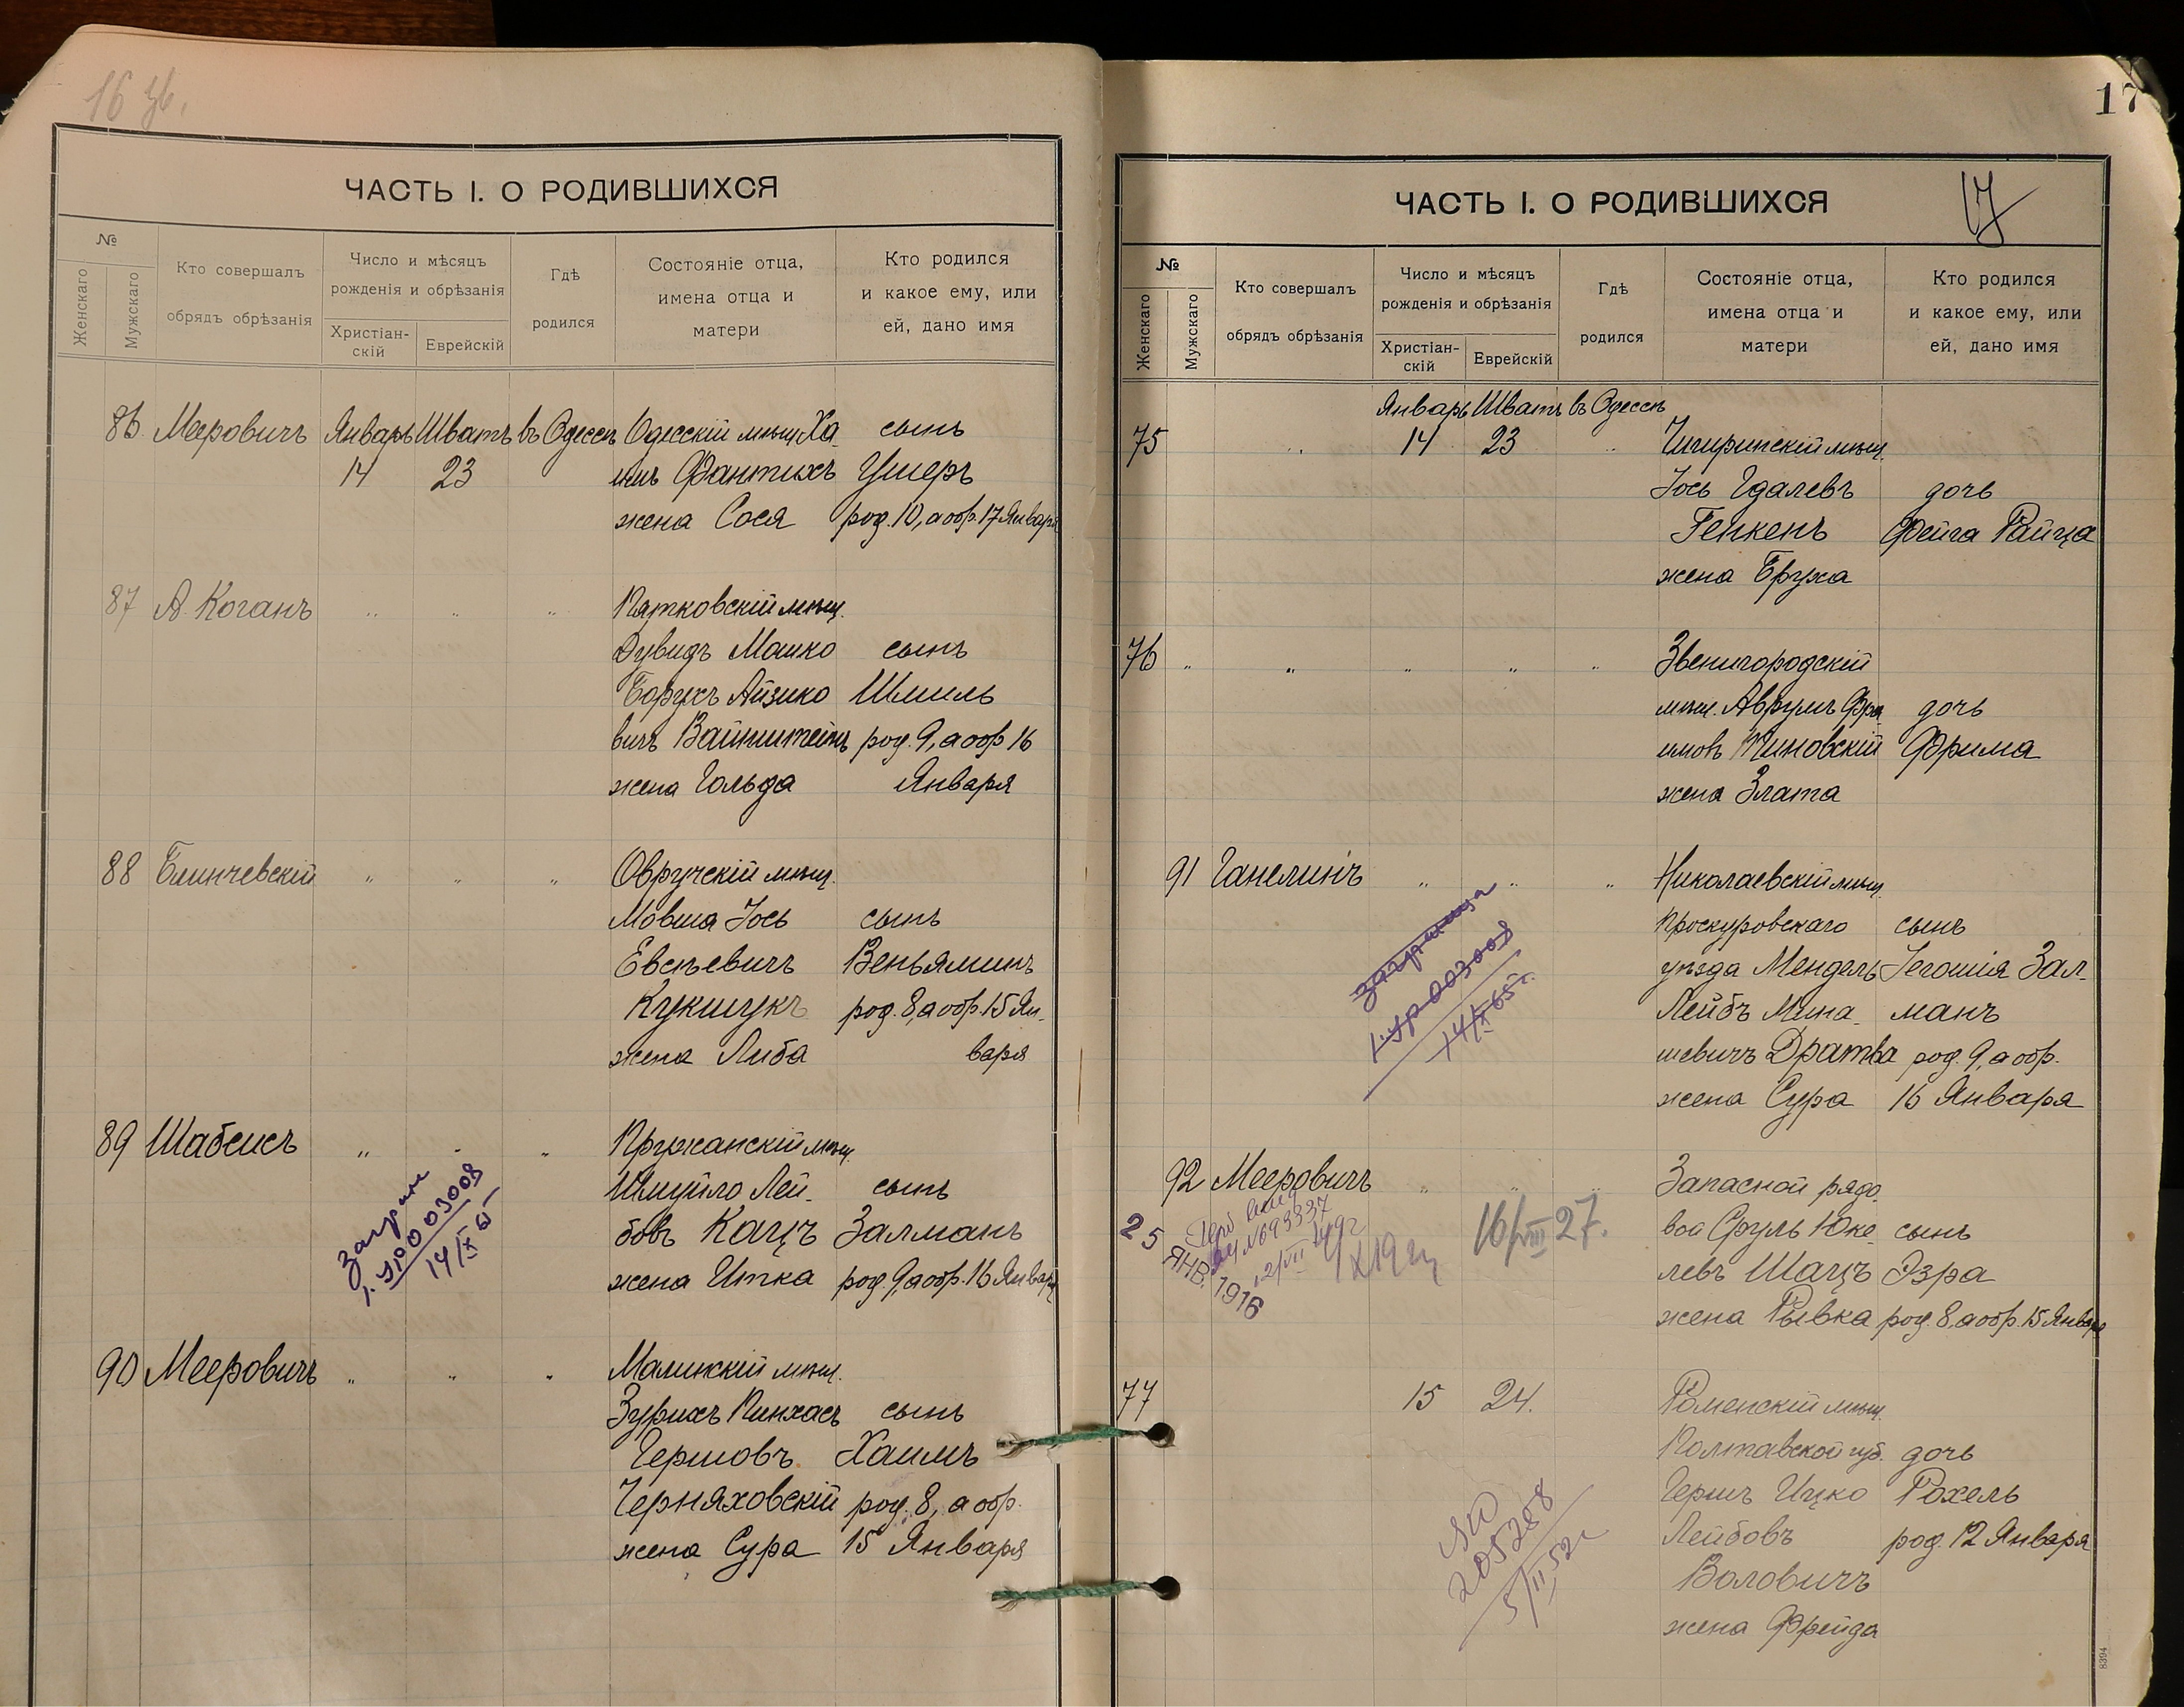 16 зв.
ЧАСТЬ I. О РОДИВШИХСЯ
№
Женскаго
Мужскаго
Кто совершалъ
обрядъ обрѣзанія
Число и мѣсяцъ
рожденія и обрѣзанія
Христіан-
скій
Еврейскій
Гдѣ
родился
Состояніе отца,
имена отца и
матери
Кто родился
и какое ему, или
ей, дано имя
86 Мееровичъ Январь Шватъ въ Одессѣ Одесскій мѣщ Ха сынъ
14 23 имъ Фантихъ Ушеръ
жена Сося род. 10, а обр. 17 Января
87 А. Коганъ „ „ „ Пятковскій мѣщ.
Дувидъ Мошко сынъ
Борухъ Айзико Шмиль
вичъ Вайнштейнъ род. 9, а обр 16
жена Гольда Января
88 Блинчевскій „ „ „ Овручскій мѣщ.
Мовша Іось сынъ
Евсѣевичъ Веньяминъ
Кукшукъ род. 8, а обр. 15 Ян-
жена Либа варя
89 Шабсисъ „ „ „ Пружанскій мѣщ.
Шмуйло Лей- сынъ
бовъ Кацъ Залманъ
жена Итка род. 9, а обр. 16 Января
14/X 65
90 Мееровичъ „ „ „ Малинскій мѣщ.
Зурихъ Пинхасъ сынъ
Гершовъ Хаимъ
Черняховскій род. 8, а обр.
жена Сура 15 Января
17
ЧАСТЬ I. О РОДИВШИХСЯ
17
№
Женскаго
Мужскаго
Кто совершалъ
обрядъ обрѣзанія
Число и мѣсяцъ
рожденія и обрѣзанія
Христіан-
скій
Еврейскій
Гдѣ
родился
Состояніе отца,
имена отца и
матери
Кто родился
и какое ему, или
ей, дано имя
Январь Шватъ въ Одессѣ
75 „ 14 23 „ Чигиринскій мѣщ.
Іось Гдалевъ дочь
Генкенъ Фейга Райца
жена Бруха
76 „ „ „ „ „ Звенигородскій
мѣщ. Аврумъ Фро дочь
имовъ Фрима
жена Злата
91 Ганелинъ „ „ „ Николаевскій мѣщ.
Проскуровскаго сынъ
уѣзда Мендель Іегошія Зал-
Лейбъ Мана- манъ
шевичъ Дратва род. 9, а обр.
жена Сура 16 Января
заграница
003008
14/X 65 г.
92 Мееровичъ „ „ „ Запасной рядо
вой Сруль Юке сынъ
левъ Шацъ Эзра
жена Рывка род. 8, а обр. 15 Января
25 ЯНВ. 1916
16/VIII 27.
77 15 24. Роменскій мѣщ.
Полтавской губ. дочь
Гершъ Ицко Рохель
Лейбовъ род. 12 Января
Воловичъ
жена Фрейда
205208
5/II 52 г
8394